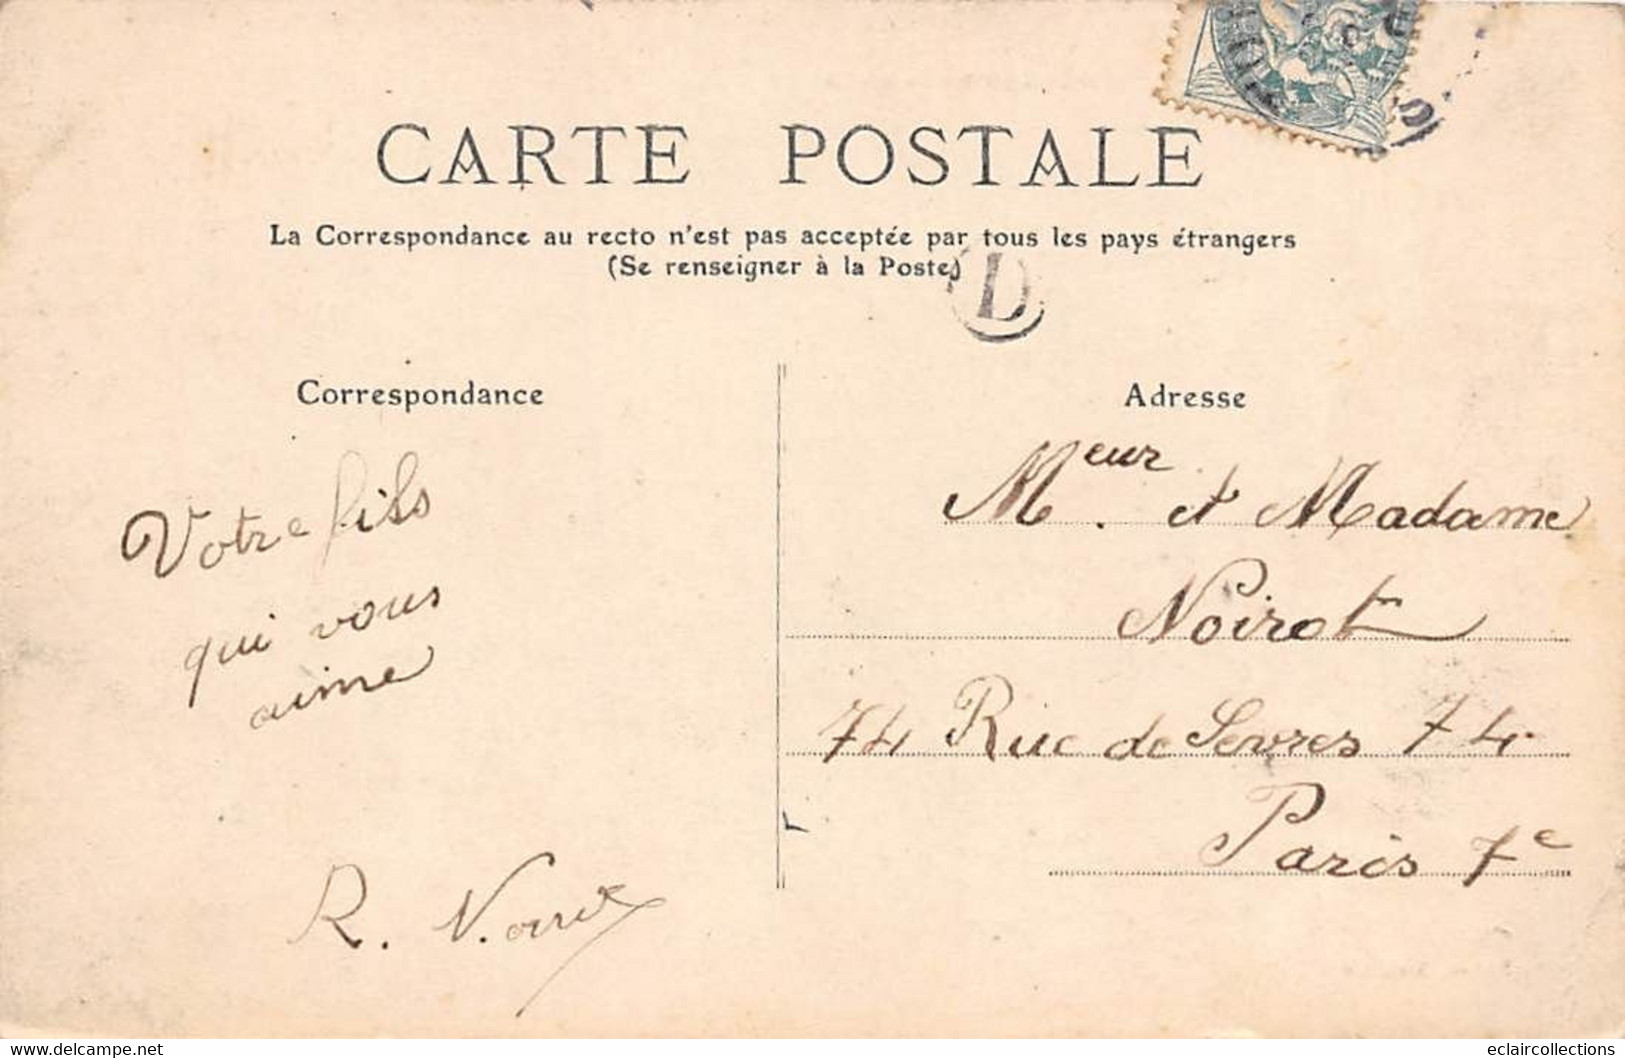 CARTE POSTALE
La Correspondance au recto n'est pas acceptée par tous les pays étrangers
(Se renseigner à la Poste)
D
Correspondance
Adresse
Votre fils
qui vous
aime
R. Noirot
Meur. et Madame
Noirot
74 Rue de Sèvres 74
Paris 7e
www.delcampe.net
eclaircollections